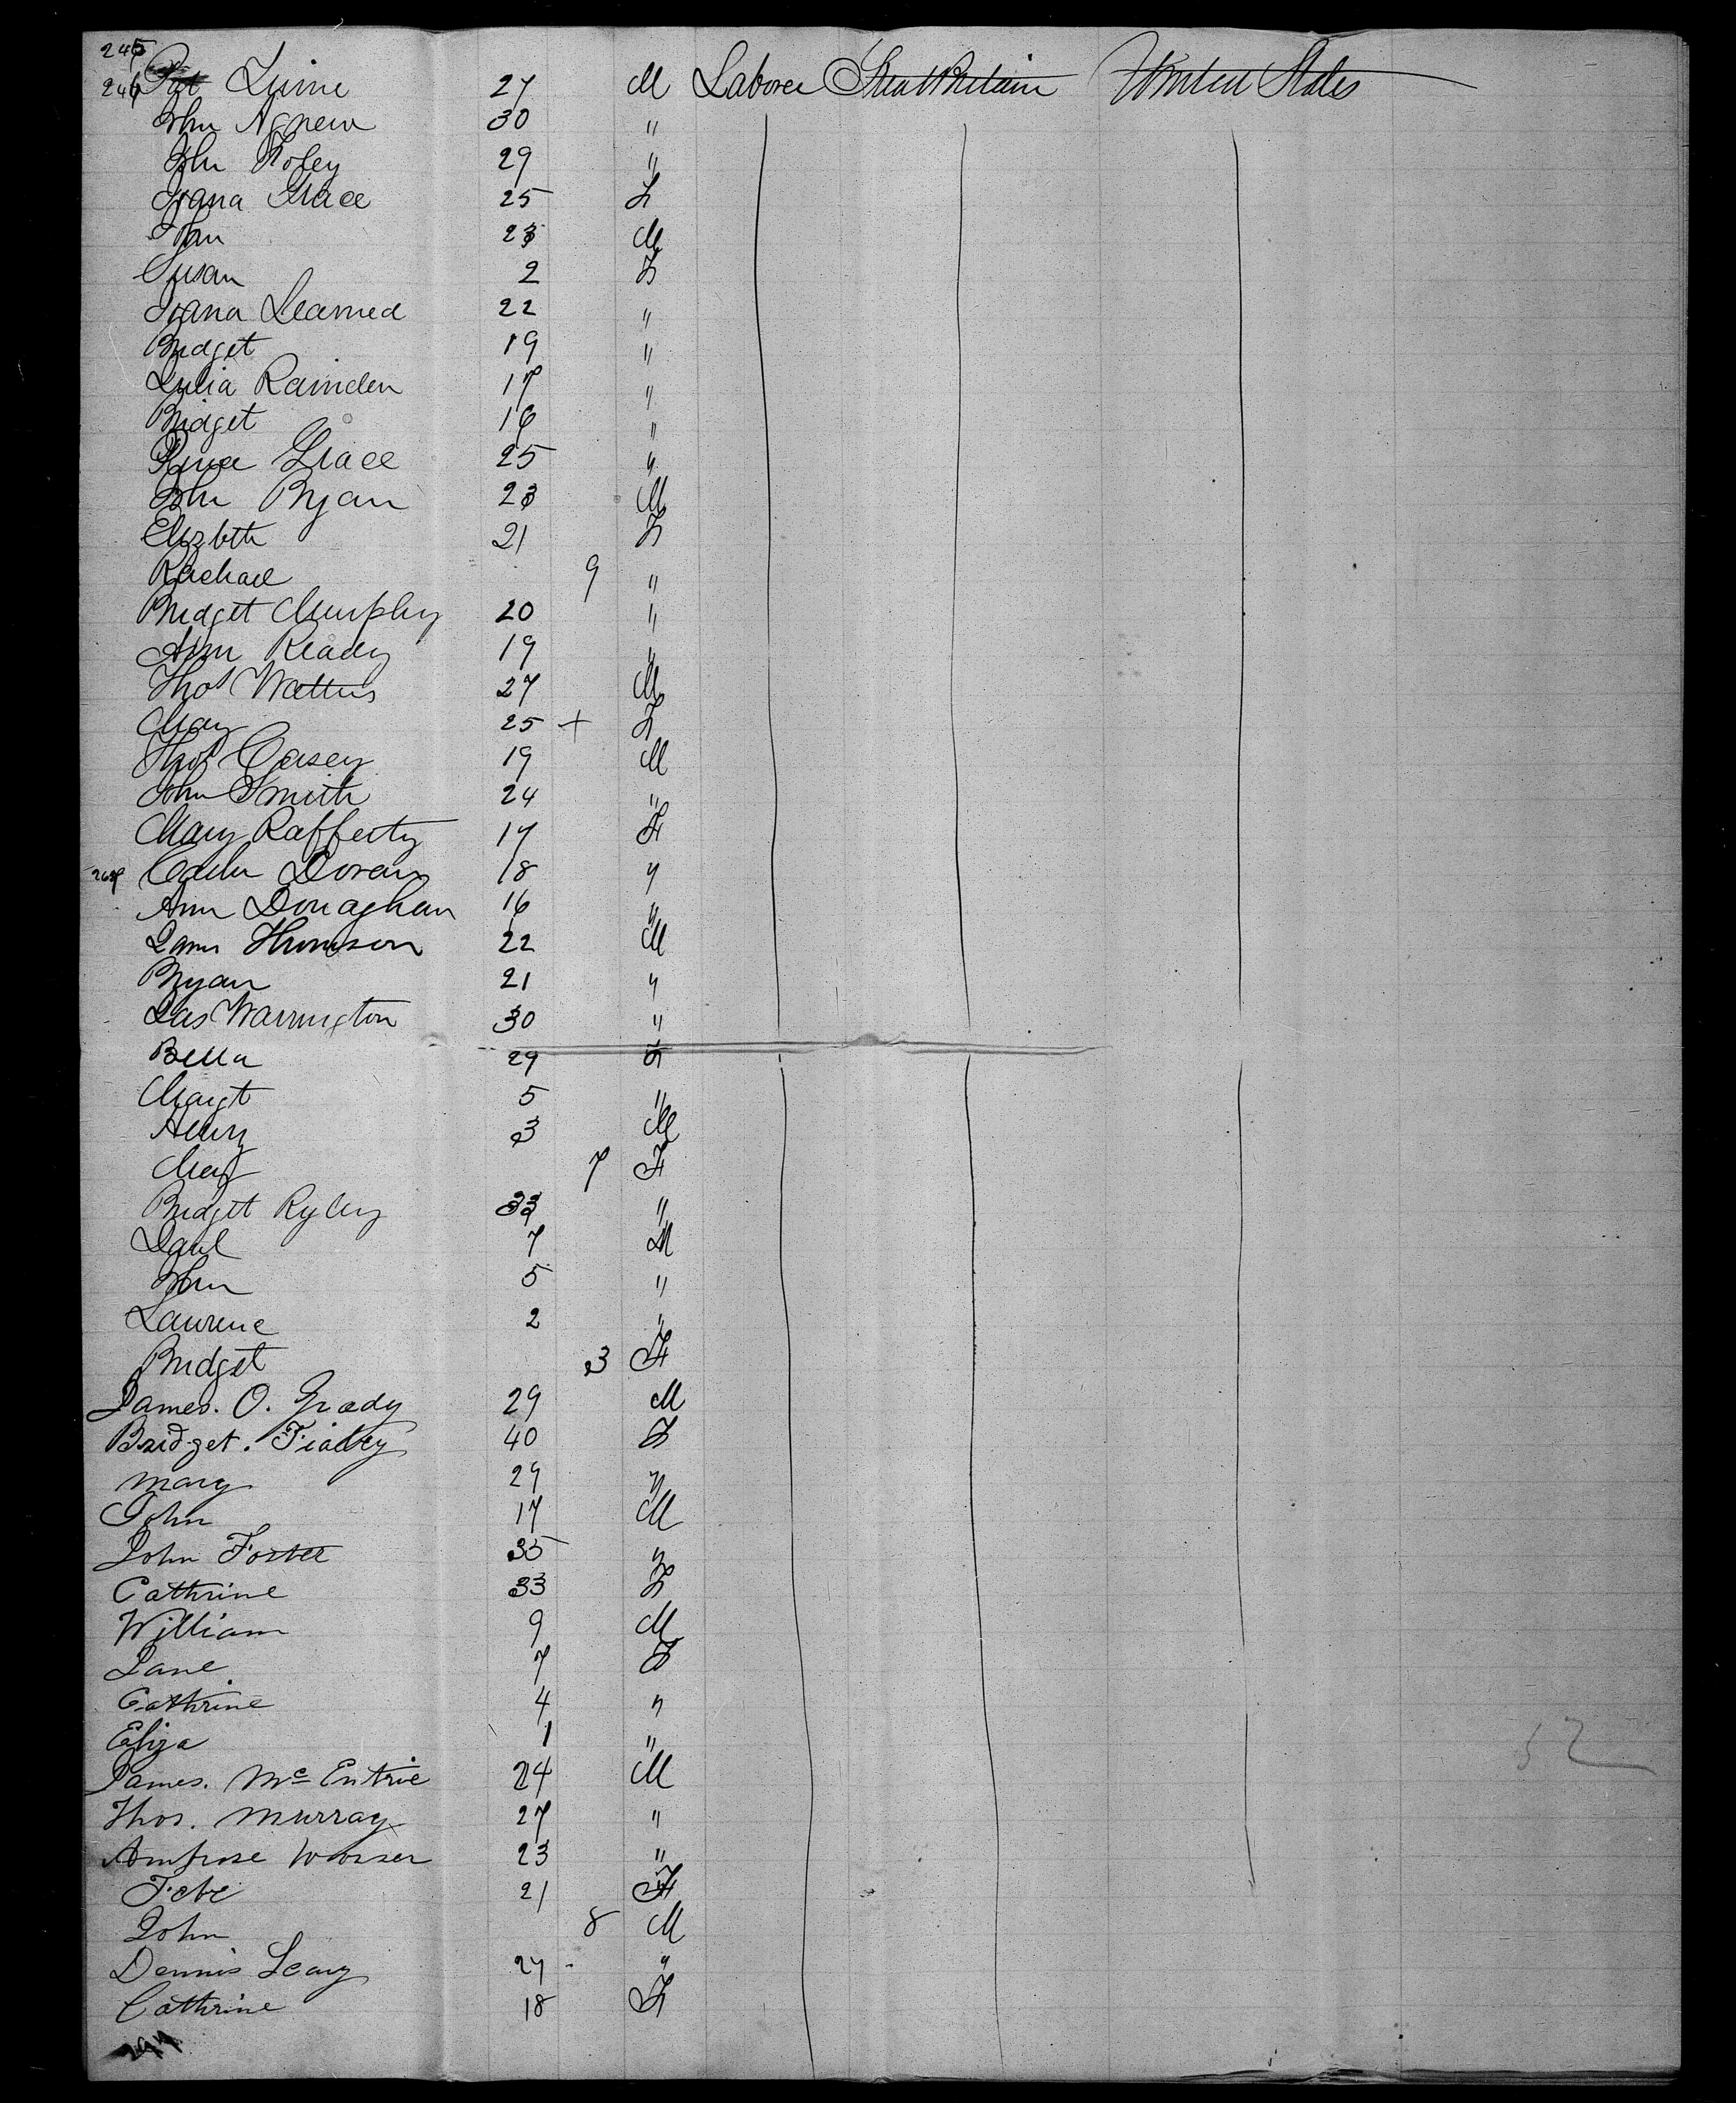 245
246 Pat Quinn 27 M Laborer Great Britain United States
John Agnew 30 "
John Foley 29 "
Grace 25 F
John 23 M
Susan 2 F
Learned 22 "
Bridget 19 "
Julia Rainden 17 "
Bridget 16 "
Grace 25 "
John Ryan 23 M
Elizbth 21 F
Rachael 9 "
Bridget Murphy 20 "
Ann Ready 19 "
Thos Watters 27 M
May 25 + F
Thos Casey 19 M
John Smith 24 "
Mary Rafferty 17 F
Doran 18 "
Ann Donaghan 16 "
James Thomson 22 M
Bryan 21 "
Jas Warrington 30 "
Bella 29 F
Margt 5 "
Henry 3 M
May 7 F
Bridget Ryley 33 "
Danl 7 M
John 5 "
Laurence 2 "
Bridget 3 F
James. O. Grady 29 M
Bridget. 40 F
Mary 29 "
John 17 M
John Foster 35 "
Cathrine 33 F
William 9 M
Jane 7 F
Cathrine 4 "
Eliza 1 "
James. Mc Entrie 24 M
Thos. Murray 27 "
Ambrose 23 "
21 F
John 8 M
Dennis Leary 27 "
Cathrine 18 F
52